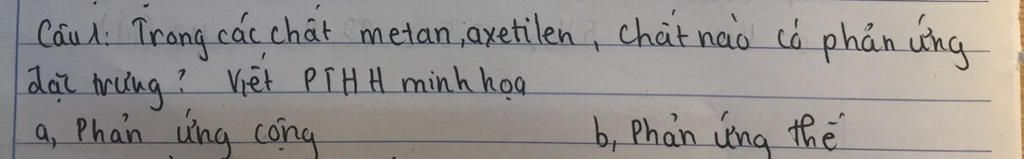 Câu 1: Trong các chất metan, axetilen, chất nào có phản ứng
đặc trưng? Viết PTHH minh họa
a, Phản ứng cộng b, Phản ứng thế